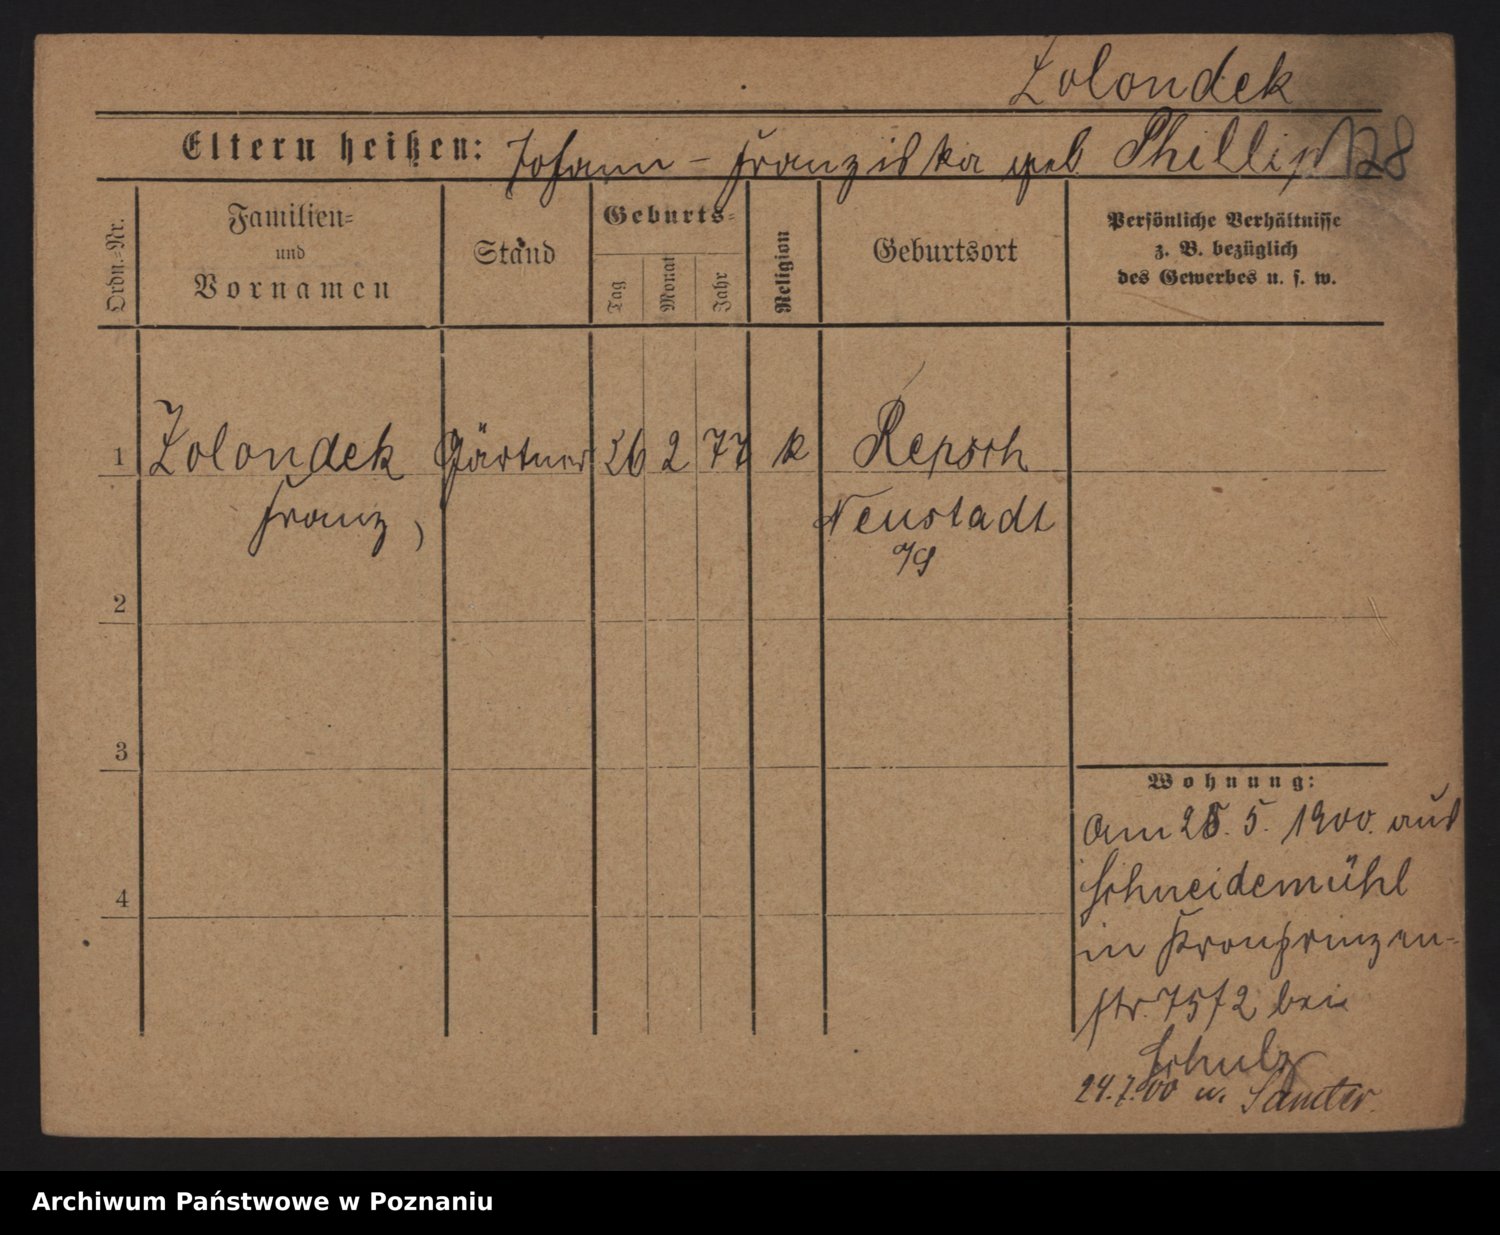 Zolondek
Eltern heißen: Johann - Franziska geb Phillip 128
Ordn.-Nr.
Familien-
und
Vornamen
Stand
Geburts-
Tag
Monat
Jahr
Religion
Geburtsort
Persönliche Verhältnisse
z. B. bezüglich
des Gewerbes u. s. w.
1 Zolondek Gärtner 26 2 77 k Repsch
Franz, Neustadt
O/S
2
3
4
Wohnung:
Am 25. 5. 1900. aus
Schneidemühl
in Kronprinzen-
str. 75/2 bei
Schulz
24.7.00 n. Samter.
Archiwum Państwowe w Poznaniu